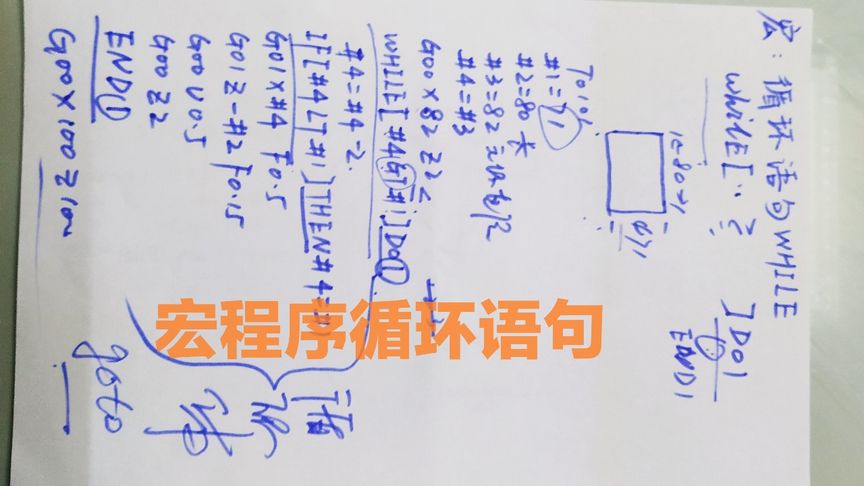 宏：循环语句WHILE
while[ ··· ? ]DO1
END1
1←80→1
T0101
#1=81
#2=80 长
#3=82
#4=#3
G00 X82 Z2
WHILE[#4GT#1]DO1
#4=#4-2
IF[#4LT#1]THEN#4=#1
G01X#4 F0.5
G01Z-#2 F0.15
G00U0.5
G00Z2
END1
G00X100Z100
循环体
goto
宏程序循环语句